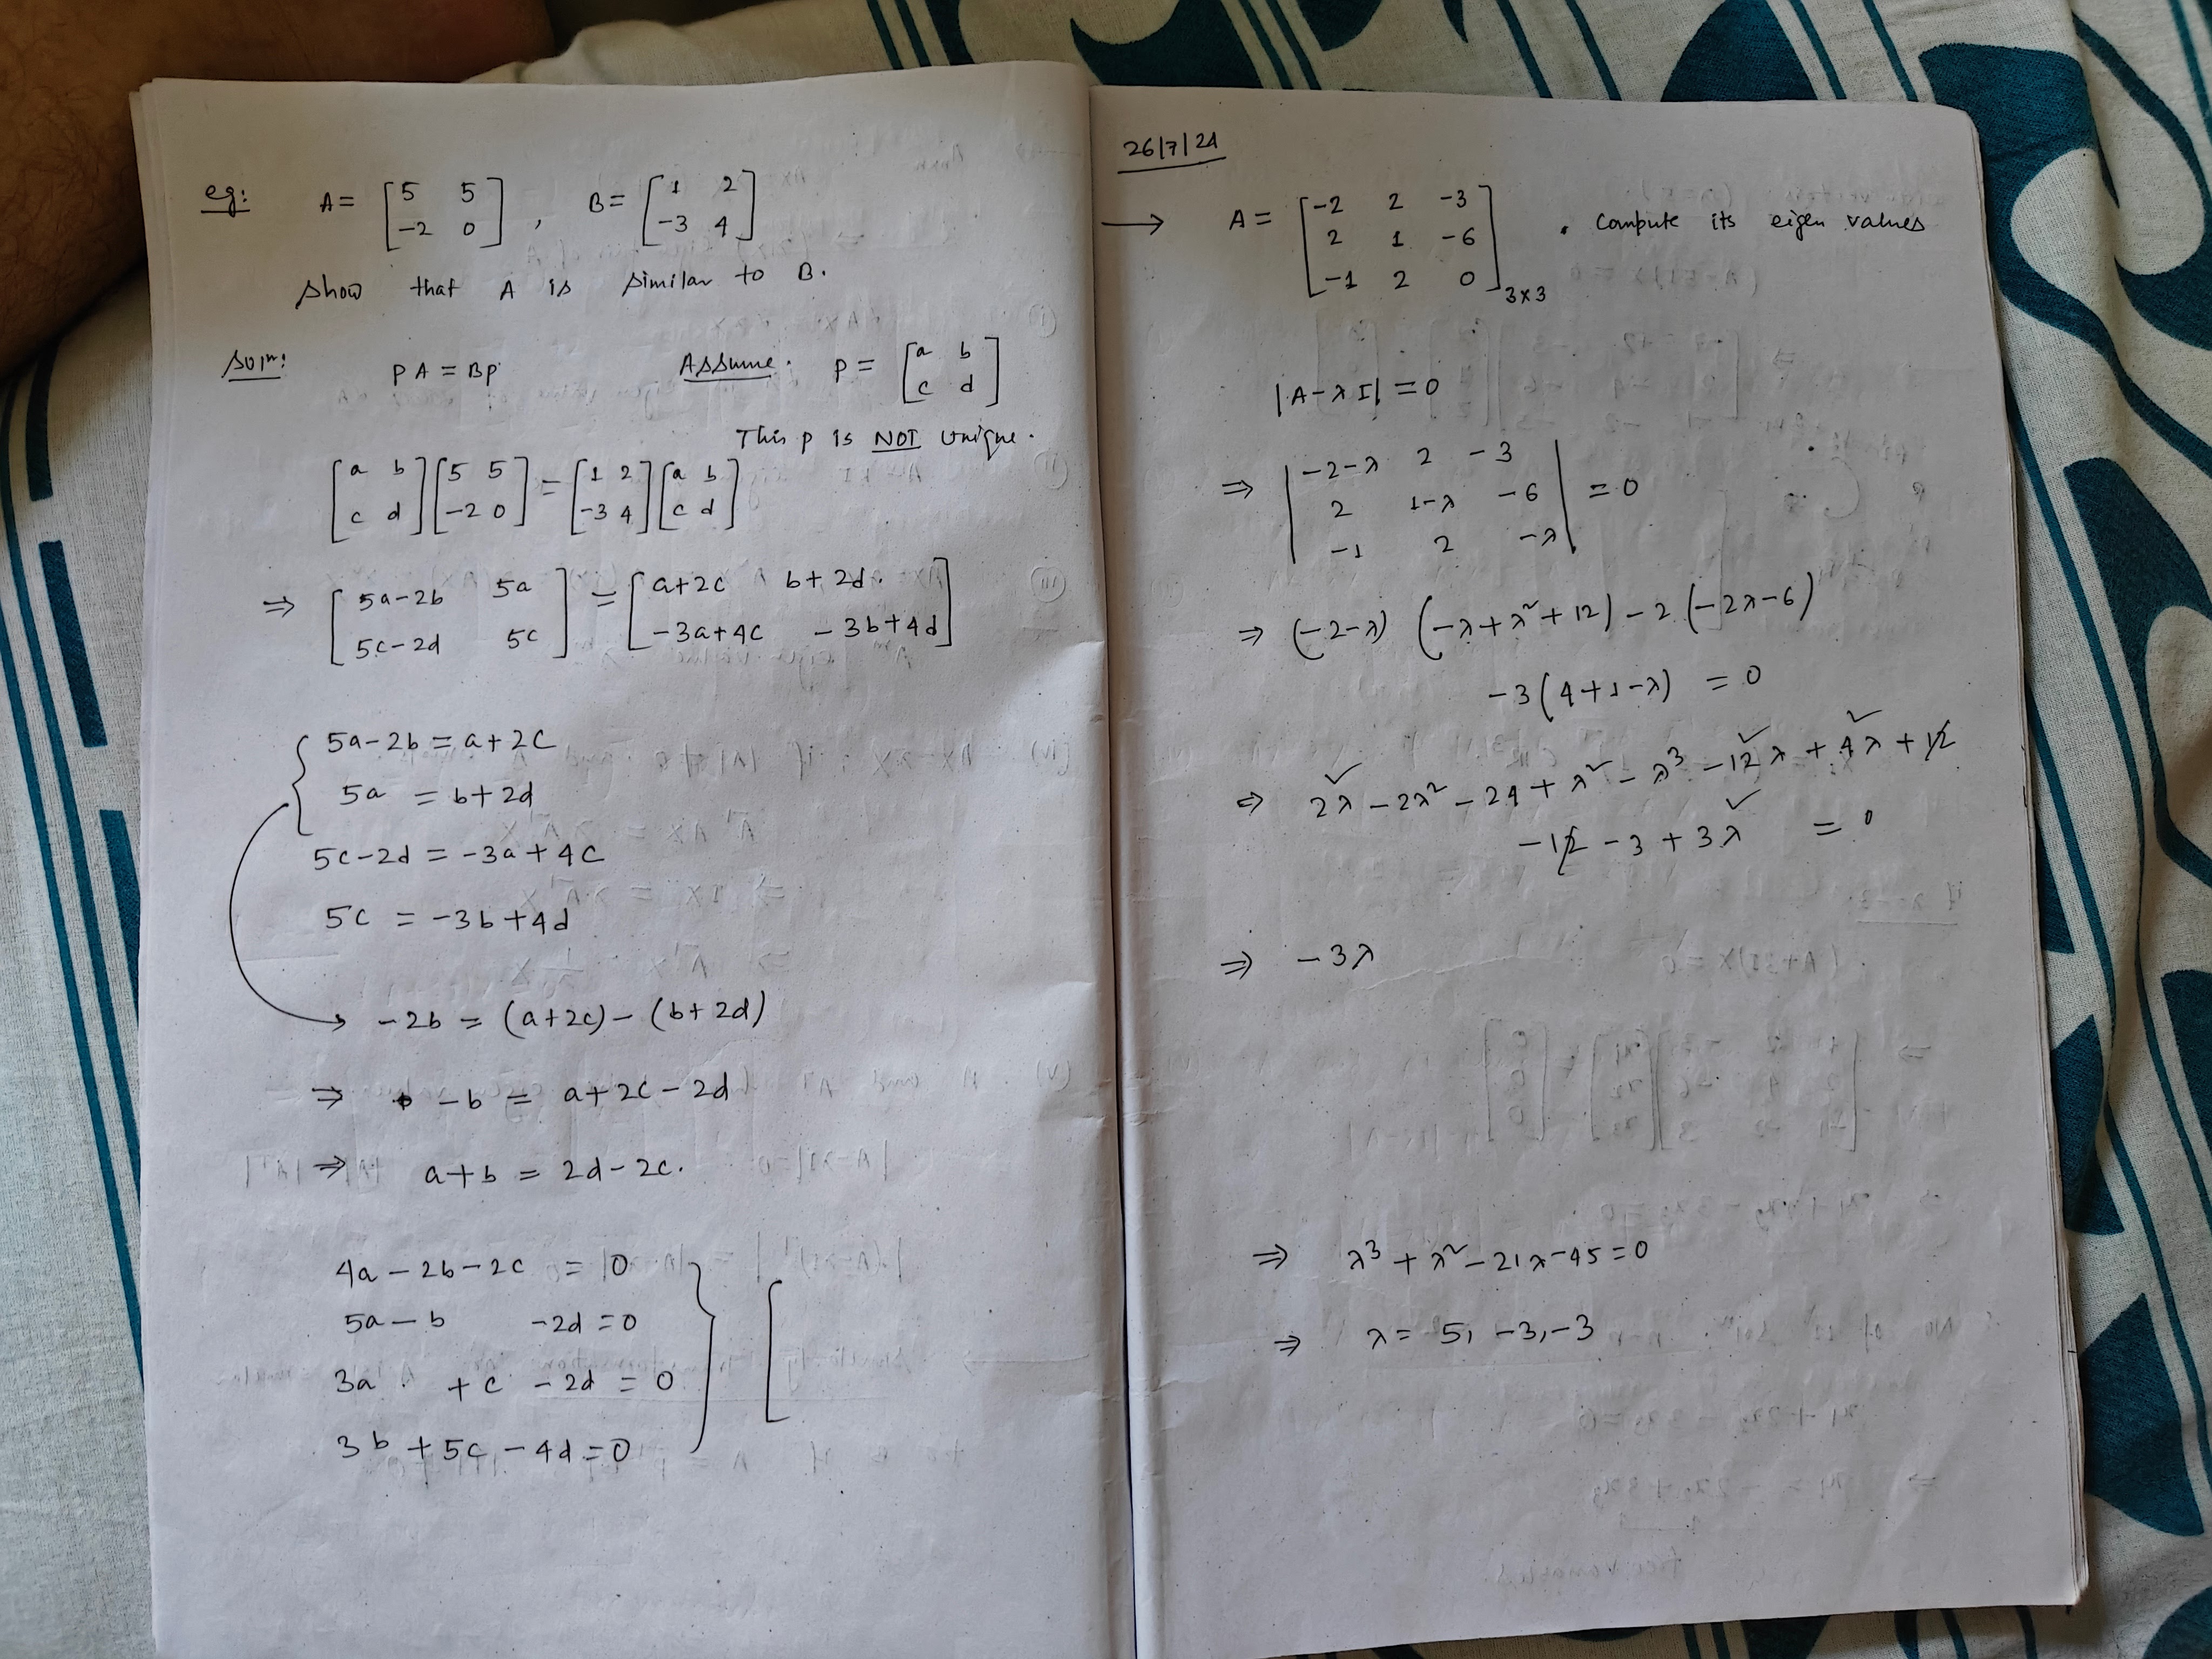 eg: A = [5 5; -2 0], B = [1 2; -3 4]
show that A is similar to B.
Solⁿ: PA = BP Assume. P = [a b; c d]
This P is NOT unique.
[a b; c d] [5 5; -2 0] = [1 2; -3 4] [a b; c d]
⇒ [5a-2b 5a; 5c-2d 5c] = [a+2c b+2d; -3a+4c -3b+4d]
5a-2b = a+2c
5a = b+2d
5c-2d = -3a+4c
5c = -3b+4d
→ -2b = (a+2c) - (b+2d)
⇒ -b = a+2c-2d
⇒ a+b = 2d-2c.
4a-2b-2c = 0
5a-b -2d = 0
3a +c -2d = 0
3b+5c-4d = 0
26/7/24
→ A = [-2 2 -3; 2 1 -6; -1 2 0] 3x3 . compute its eigen values
|A-λI| = 0
⇒ |-2-λ 2 -3; 2 1-λ -6; -1 2 -λ| = 0
⇒ (-2-λ) (-λ+λ²+12) -2 (-2λ-6)
-3(4+1-λ) = 0
⇒ 2λ-2λ²-24+λ²-λ³-12λ+4λ+12
-12-3+3λ = 0
⇒ -3λ
⇒ λ³+λ²-21λ-45=0
⇒ λ = 5, -3, -3